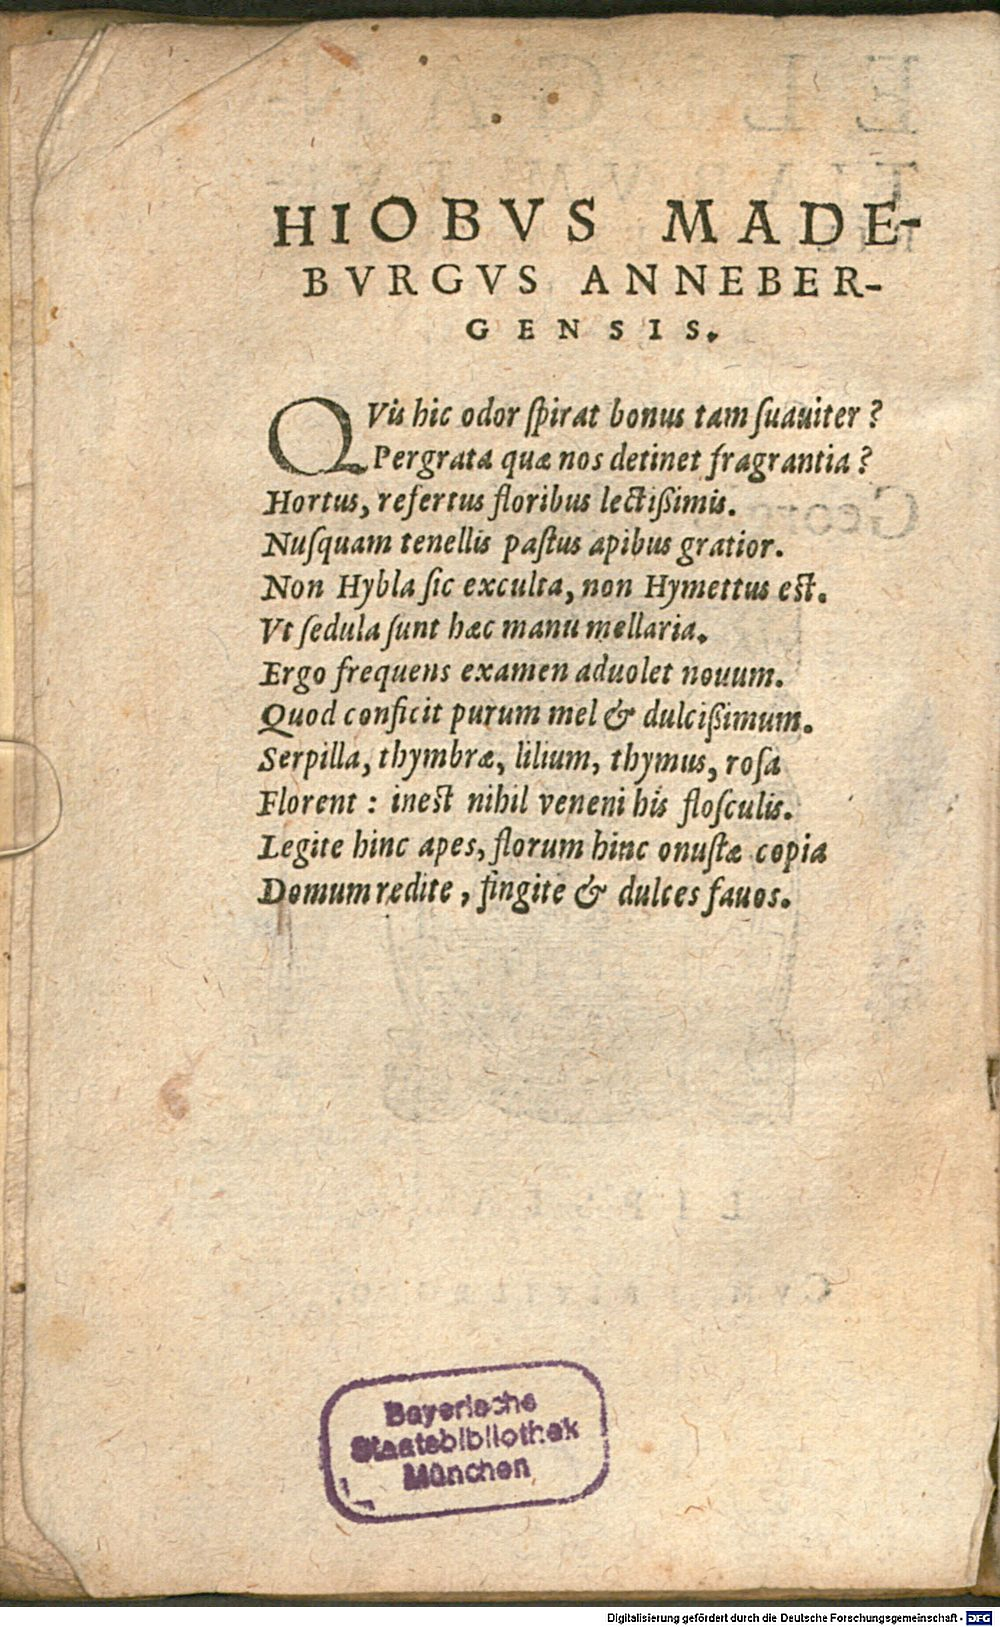 HIOBVS MADE-
BVRGVS ANNEBER-
GENSIS.
QVis hic odor ſpirat bonus tam ſuauiter?
Pergrata quæ nos detinet fragrantia?
Hortus, refertus floribus lectiſsimis.
Nuſquam tenellis paſtus apibus gratior.
Non Hybla ſic exculta, non Hymettus eſt.
Vt ſedula ſunt hæc manu mellaria.
Ergo frequens examen aduolet nouum.
Quod conficit purum mel & dulciſsimum.
Serpilla, thymbræ, lilium, thymus, roſa
Florent: ineſt nihil veneni his floſculis.
Legite hinc apes, florum hinc onuſtæ copia
Domum redite, fingite & dulces fauos.
Bayerische
Staatsbibliothek
München
Digitalisierung gefördert durch die Deutsche Forschungsgemeinschaft - DFG